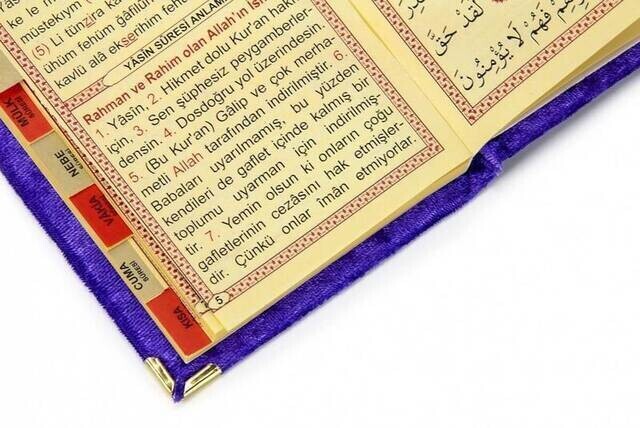 ke le m
müstekym
(5) Li tünzira ka
ühüm fehüm ğâfilûn
kavlü alâ ekserihim fehü
YASİN SÛRESİ ANLAMI
Rahman ve Rahim olan Allah'ın is
1. Yâsîn, 2. Hikmet dolu Kur'an hakkı
için, 3. Sen şüphesiz peygamberler-
densin. 4. Dosdoğru yol üzerindesin.
5. (Bu Kur'an) Gâlip ve çok merha-
metli Allah tarafından indirilmiştir. 6.
Babaları uyarılmamış, bu yüzden
kendileri de gaflet içinde kalmış bir
toplumu uyarman için indirilmiş-
tir. 7. Yemin olsun ki onların çoğu
gafletlerinin cezâsını hak etmişler-
dir. Çünkü onlar îmân etmiyorlar.
5
لَقَدْ حَقَّ
فَهُمْ لَا يُؤْمِنُونَ
MÜLK
SÛRESİ
NEBE
VAKIA
CUMA
SÛRESİ
KISA